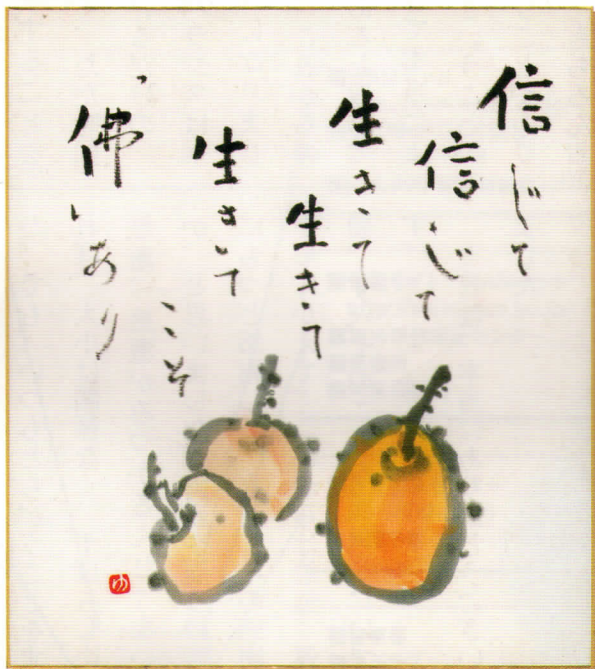 信じて
信じて
生きて
生きて
生きて
こそ
佛いあり
ゆ